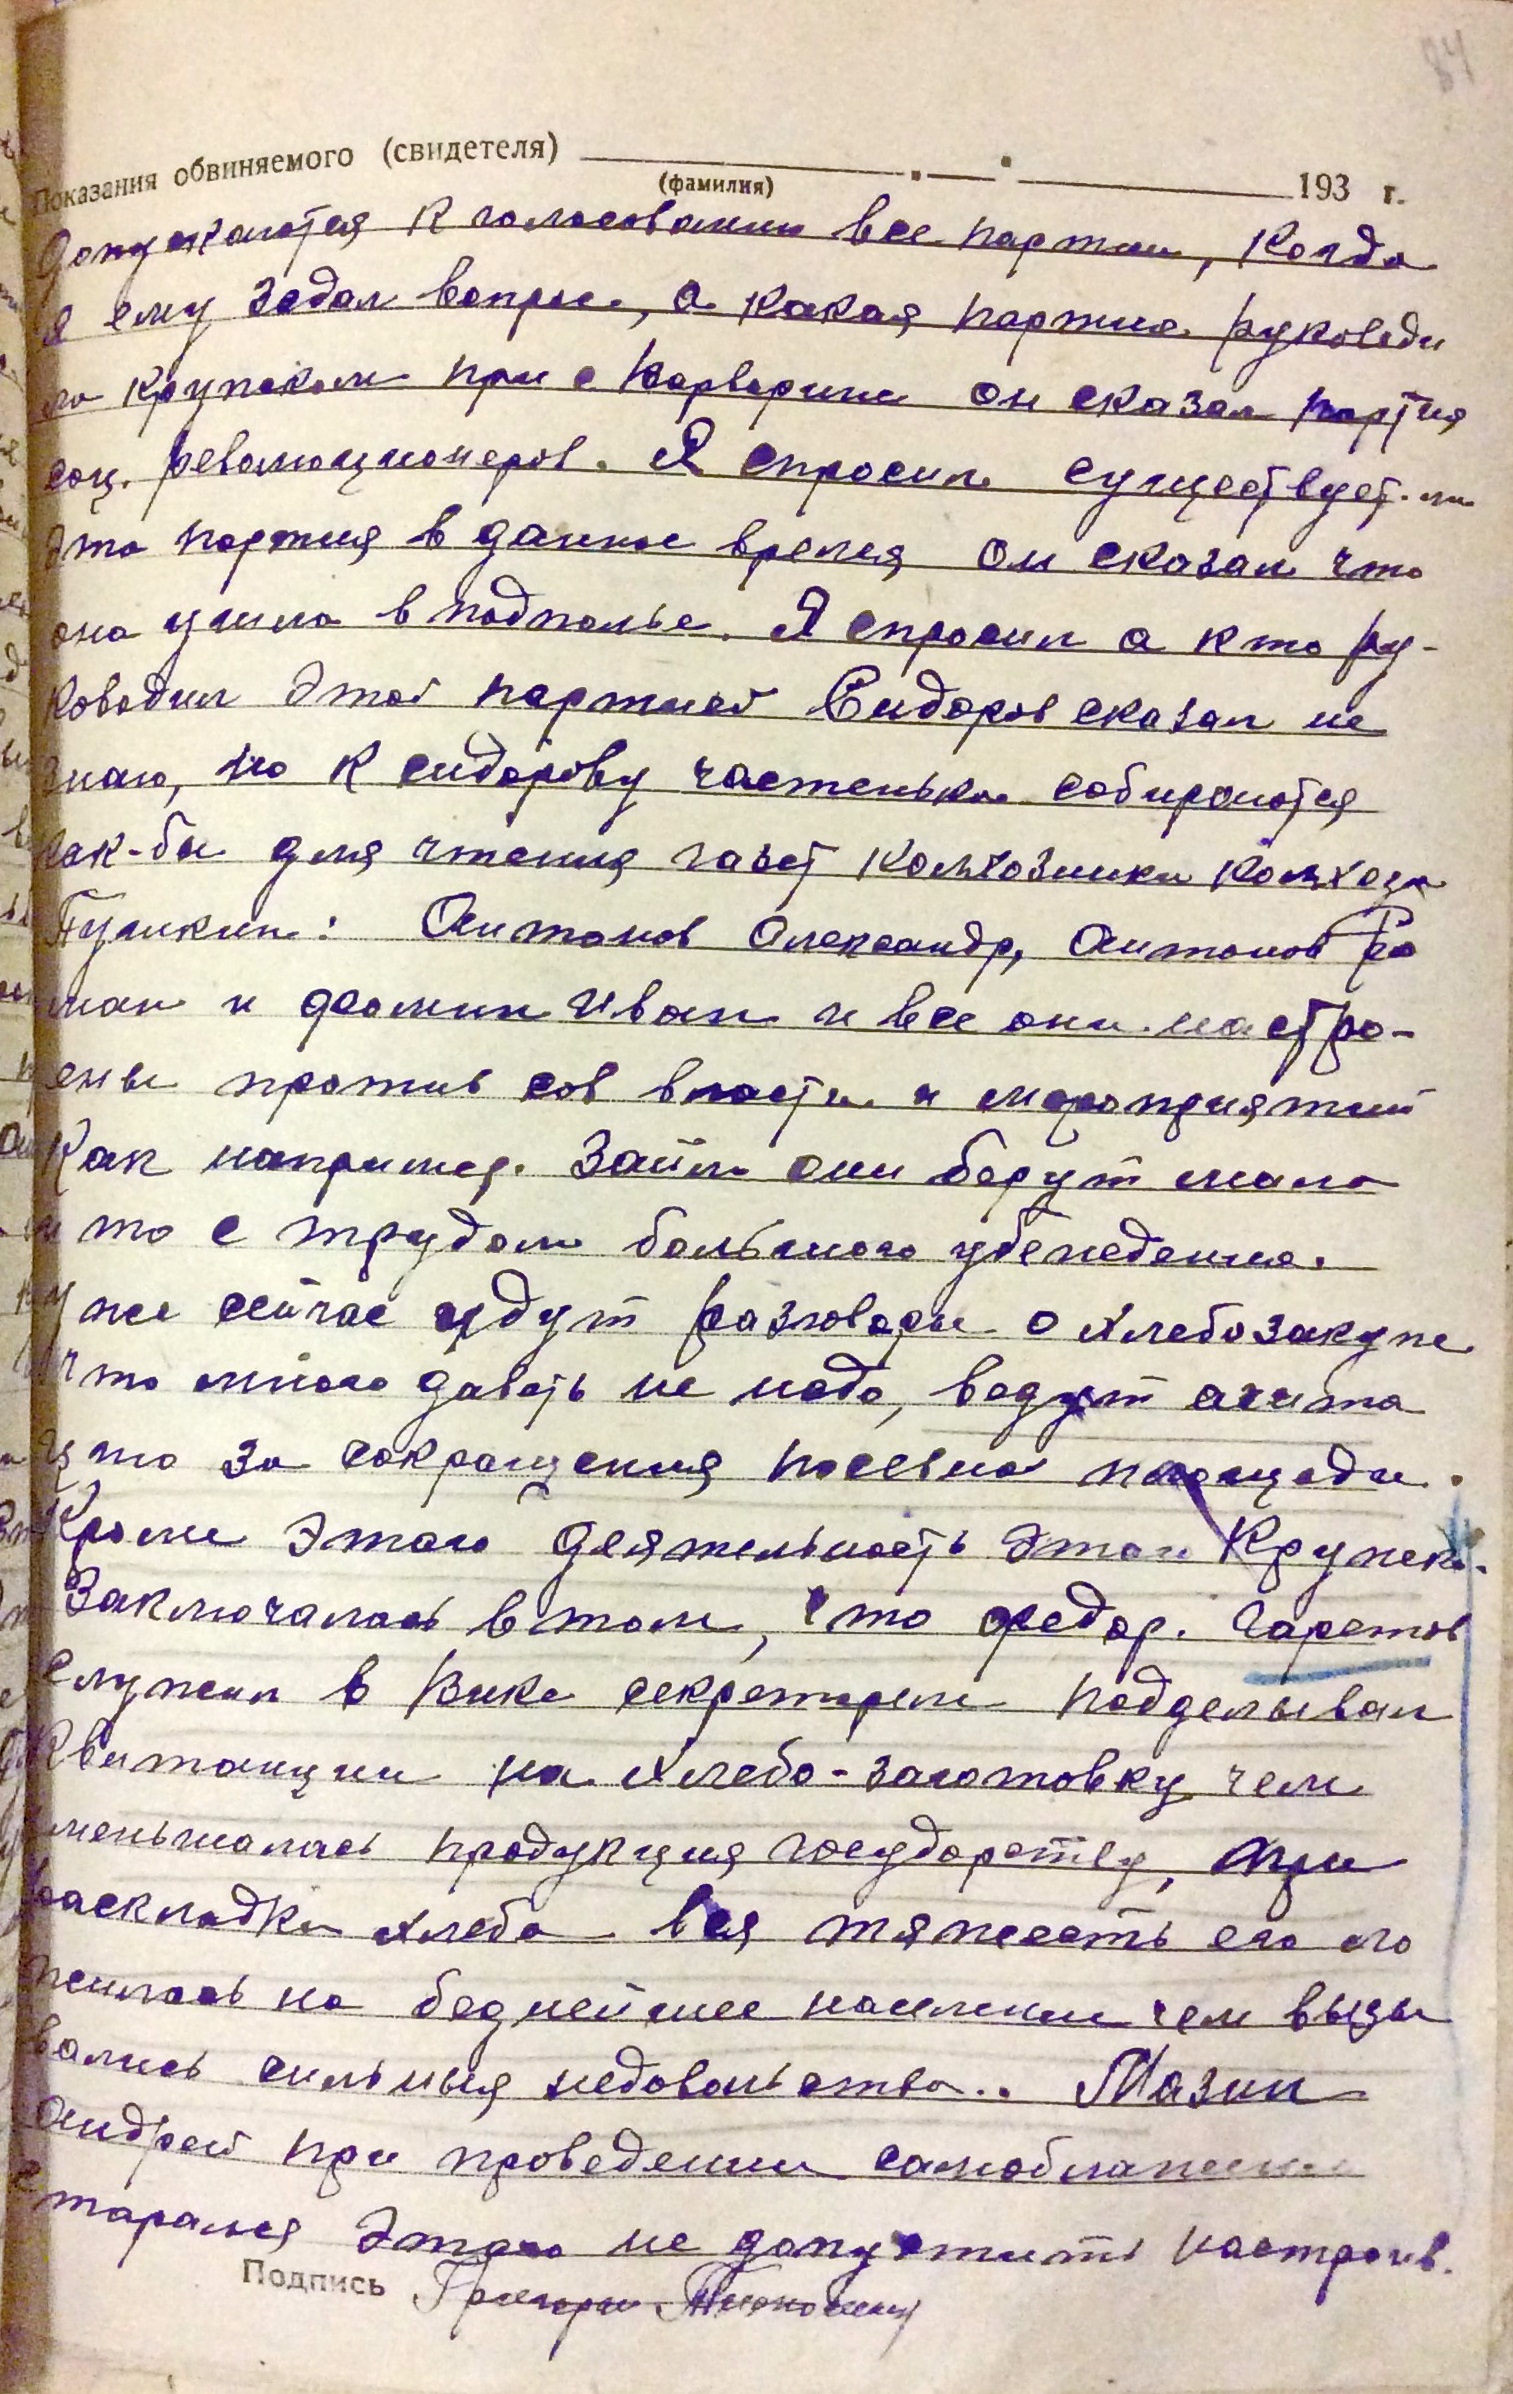 84
Показания обвиняемого (свидетеля)
(фамилия)
193 г.
Допускаются к голосовании все партии, когда
я ему задал вопрос, а какая партия руководи
ла крупском при с Карварили он сказал партия
соц. революционеров. Я спросил существует-ли
эта партия в данное время он сказал что
она ушла в подполье. Я спросил а кто ру-
ководил этой партией Сидоров сказал не
знаю, но к сидорову частенько собираются
как-бы для чтения газет колхозники колхоза
Пушкин: Антонов Александр, Антонов Ро
ман и Фомин Иван и все они настро-
ены против сов власти и мероприятий
Как например. Займ они берут мало
и то с трудом большого убеждения.
уже сейчас идут разговоры о хлебозакупе
что много давать не надо, ведут агита
цию за сокращения посевной площади.
Кроме этого деятельность этой
Заключалась в том, что Федор. Гаретов
служил в Вике секретарем подделывал
Квитанции на хлебо-заготовку чем
уменьшалась продукция государству, при
раскладки хлеба вся тяжесть его ло
жилась на беднейшее населении чем вызы
вались сильныя недовольства.. Мазин
Андрей при проведении самооблажении
старался этого не допустить настроив.
Подпись